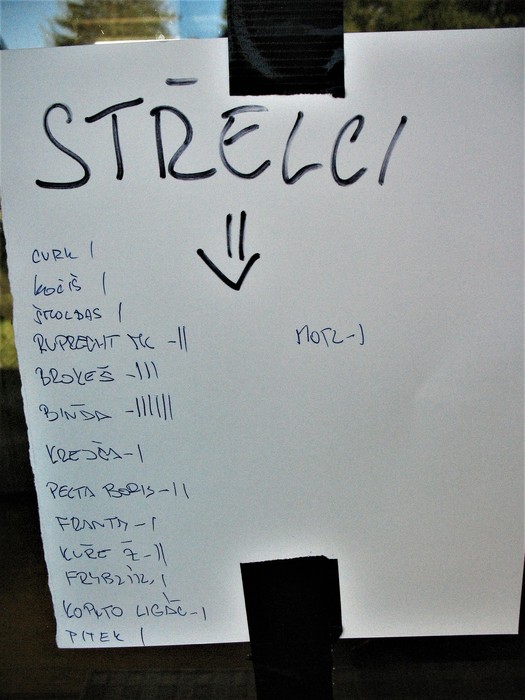 STŘELCI
CURK |
KOČIŠ |
ŠKOLDAS |
RUPRECHT -||
MOTL-|
BROKEŠ -|||
BINĎA -||||||
KREJČA-|
PECTA BORIS-||
FRANTA-|
KUŘE Ž-||
|
KOPYTO LIGÁČ-|
PITEK |